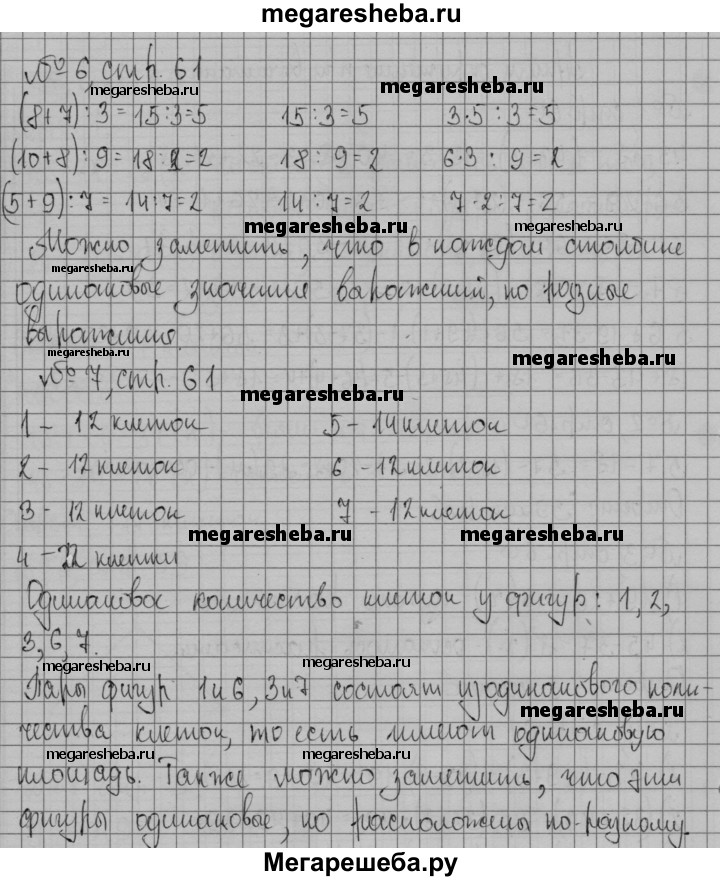 megaresheba.ru
№ 6, стр. 61
megaresheba.ru megaresheba.ru
(8+7):3=15:3=5 15:3=5 3·5:3=5
(10+8):9=18:2=2 18:9=2 6·3:9=2
(5+9):7=14:7=2 14:7=2 7·2:7=2
megaresheba.ru megaresheba.ru
Можно заметить, что в каждом столбике
megaresheba.ru
одинаковые значения выражений, но разные
выражения.
megaresheba.ru megaresheba.ru
№ 7, стр. 61
megaresheba.ru
1 – 12 клеток 5 – 14 клеток
2 – 12 клеток 6 – 12 клеток
3 – 12 клеток 7 – 12 клеток
megaresheba.ru megaresheba.ru
4 – 22 клетки
Одинаковое количество клеток у фигур: 1, 2,
3, 6, 7.
megaresheba.ru megaresheba.ru
Пары фигур 1 и 6, 3 и 7 состоят из одинакового коли-
megaresheba.ru
чества клеток, то есть имеют одинаковую
megaresheba.ru megaresheba.ru
площадь. Также можно заметить, что эти
фигуры одинаковые, но расположены по-разному.
Мегарешеба.ру